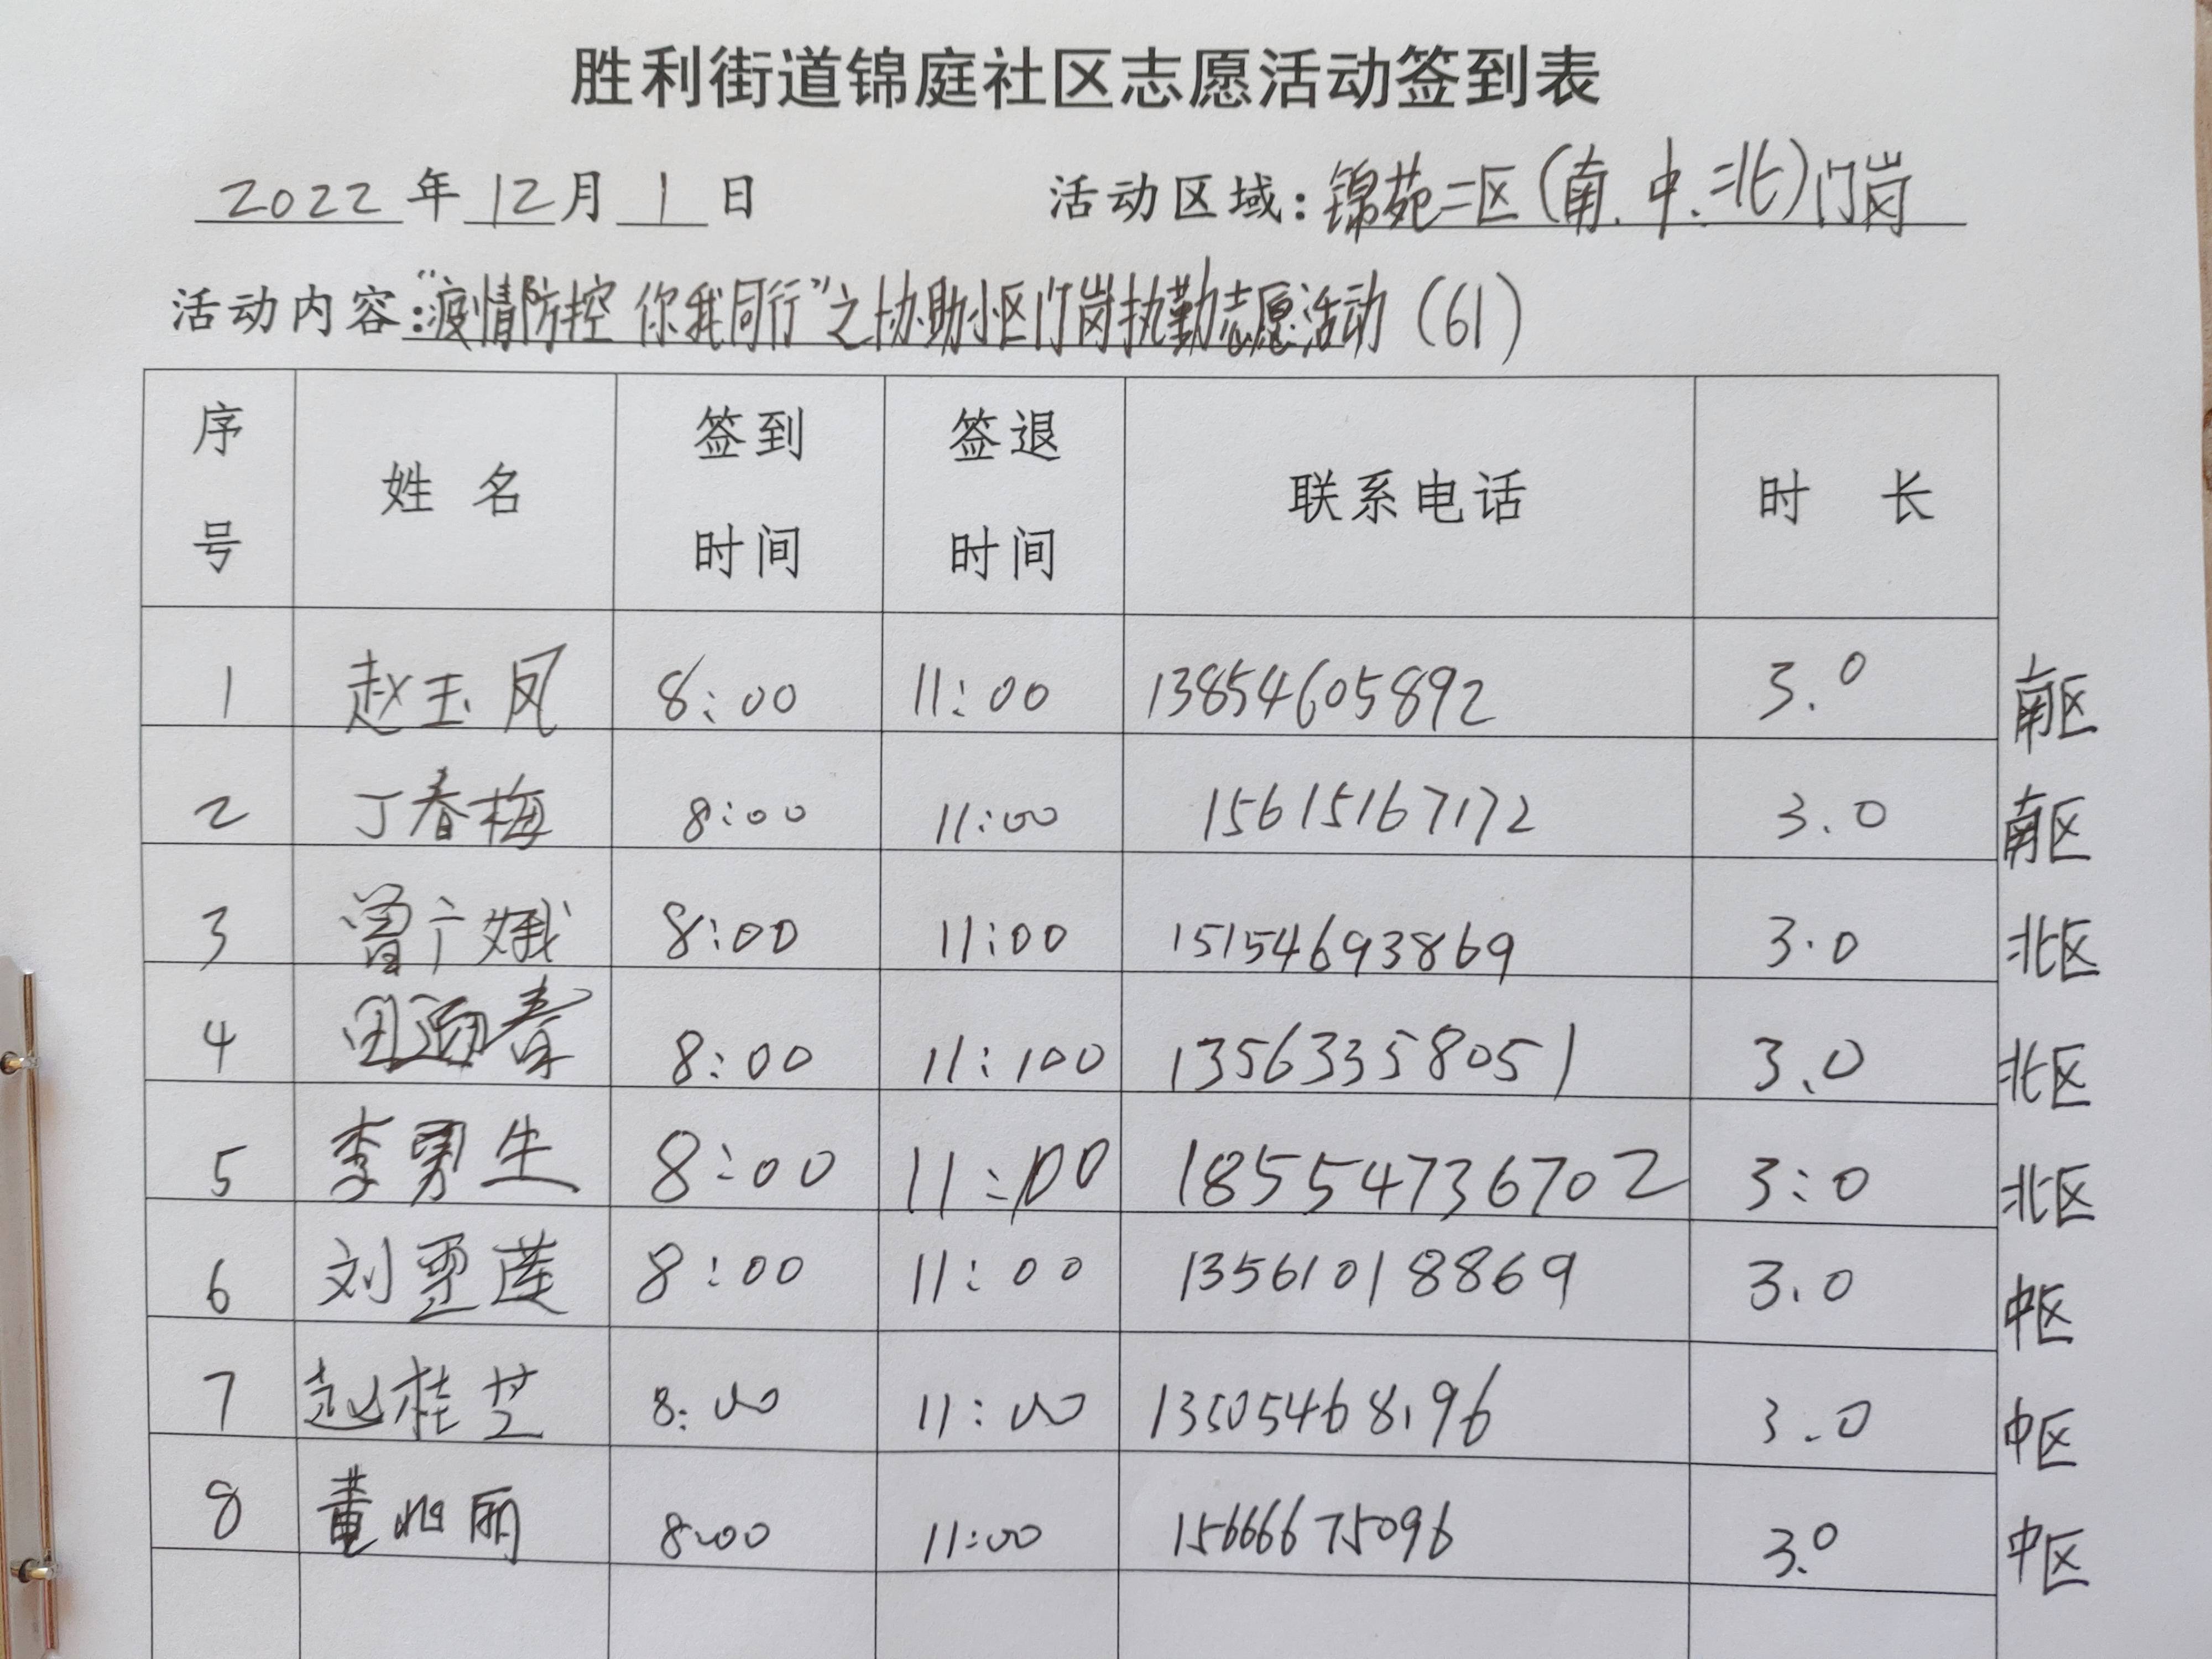 胜利街道锦庭社区志愿活动签到表
2022年12月1日 活动区域:锦苑二区(南.中.北)门岗
活动内容:"疫情防控 你我同行"之协助小区门岗执勤志愿活动(61)
序号 姓名 签到时间 签退时间 联系电话 时长
1 赵玉凤 8:00 11:00 13854605892 3.0 南区
2 丁春梅 8:00 11:00 15615167172 3.0 南区
3 曾广娥 8:00 11:00 15154693869 3.0 北区
4 田迎春 8:00 11:100 13563358051 3.0 北区
5 李男生 8:00 11:00 18554736702 3:0 北区
6 刘莲 8:00 11:00 13561018869 3.0 中区
7 赵桂芝 8:00 11:00 13505468196 3.0 中区
8 董丽 8:00 11:00 15666675096 3.0 中区